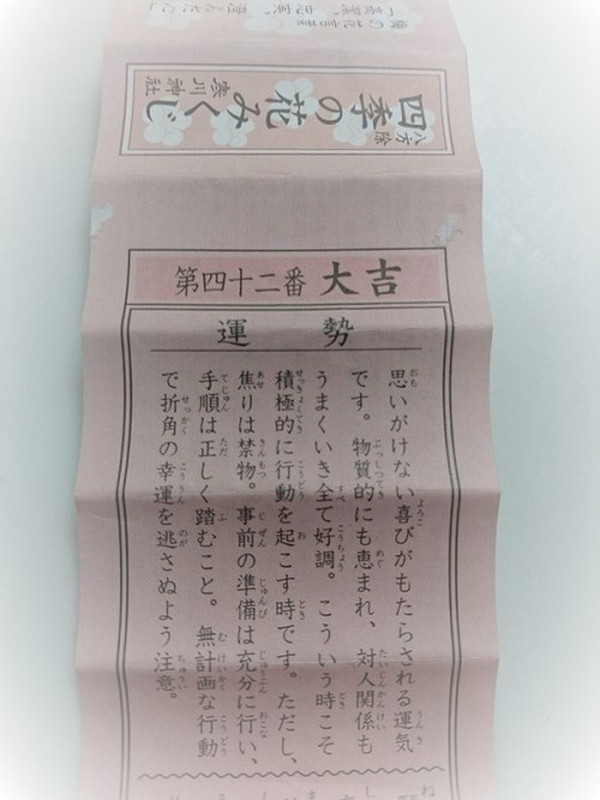 八方除
四季の花みくじ
寒川神社
第四十二番 大吉
運勢
思いがけない喜びがもたらされる運気
です。物質的にも恵まれ、対人関係も
うまくいき全て好調。こういう時こそ
積極的に行動を起こす時です。ただし、
焦りは禁物。事前の準備は充分に行い、
手順は正しく踏むこと。無計画な行動
で折角の幸運を逃さぬよう注意。